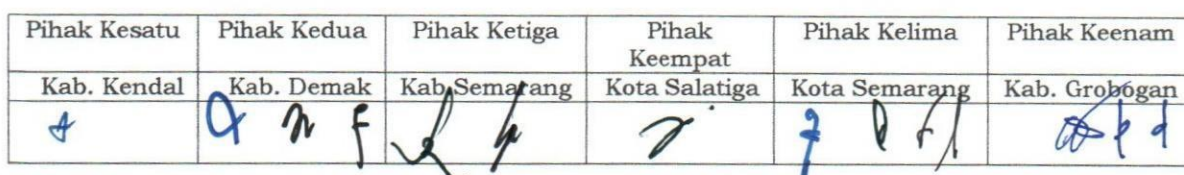 Pihak Kesatu Pihak Kedua Pihak Ketiga Pihak Keempat Pihak Kelima Pihak Keenam
Kab. Kendal Kab. Demak Kab. Semarang Kota Salatiga Kota Semarang Kab. Grobogan